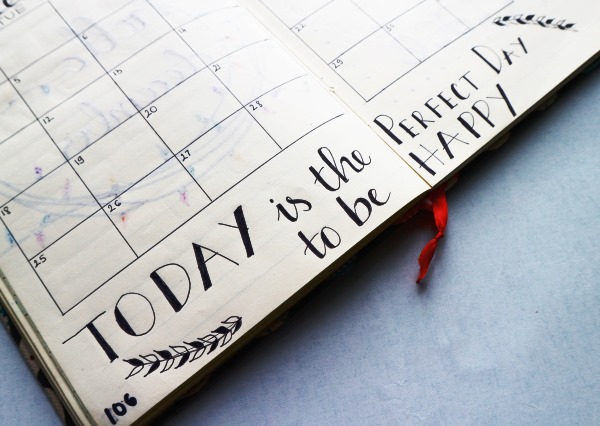 TUE
5
6
13
14
20
21
12
19
26
27
28
18
25
22
29
TODAY is the PERFECT DAY
to be HAPPY
106